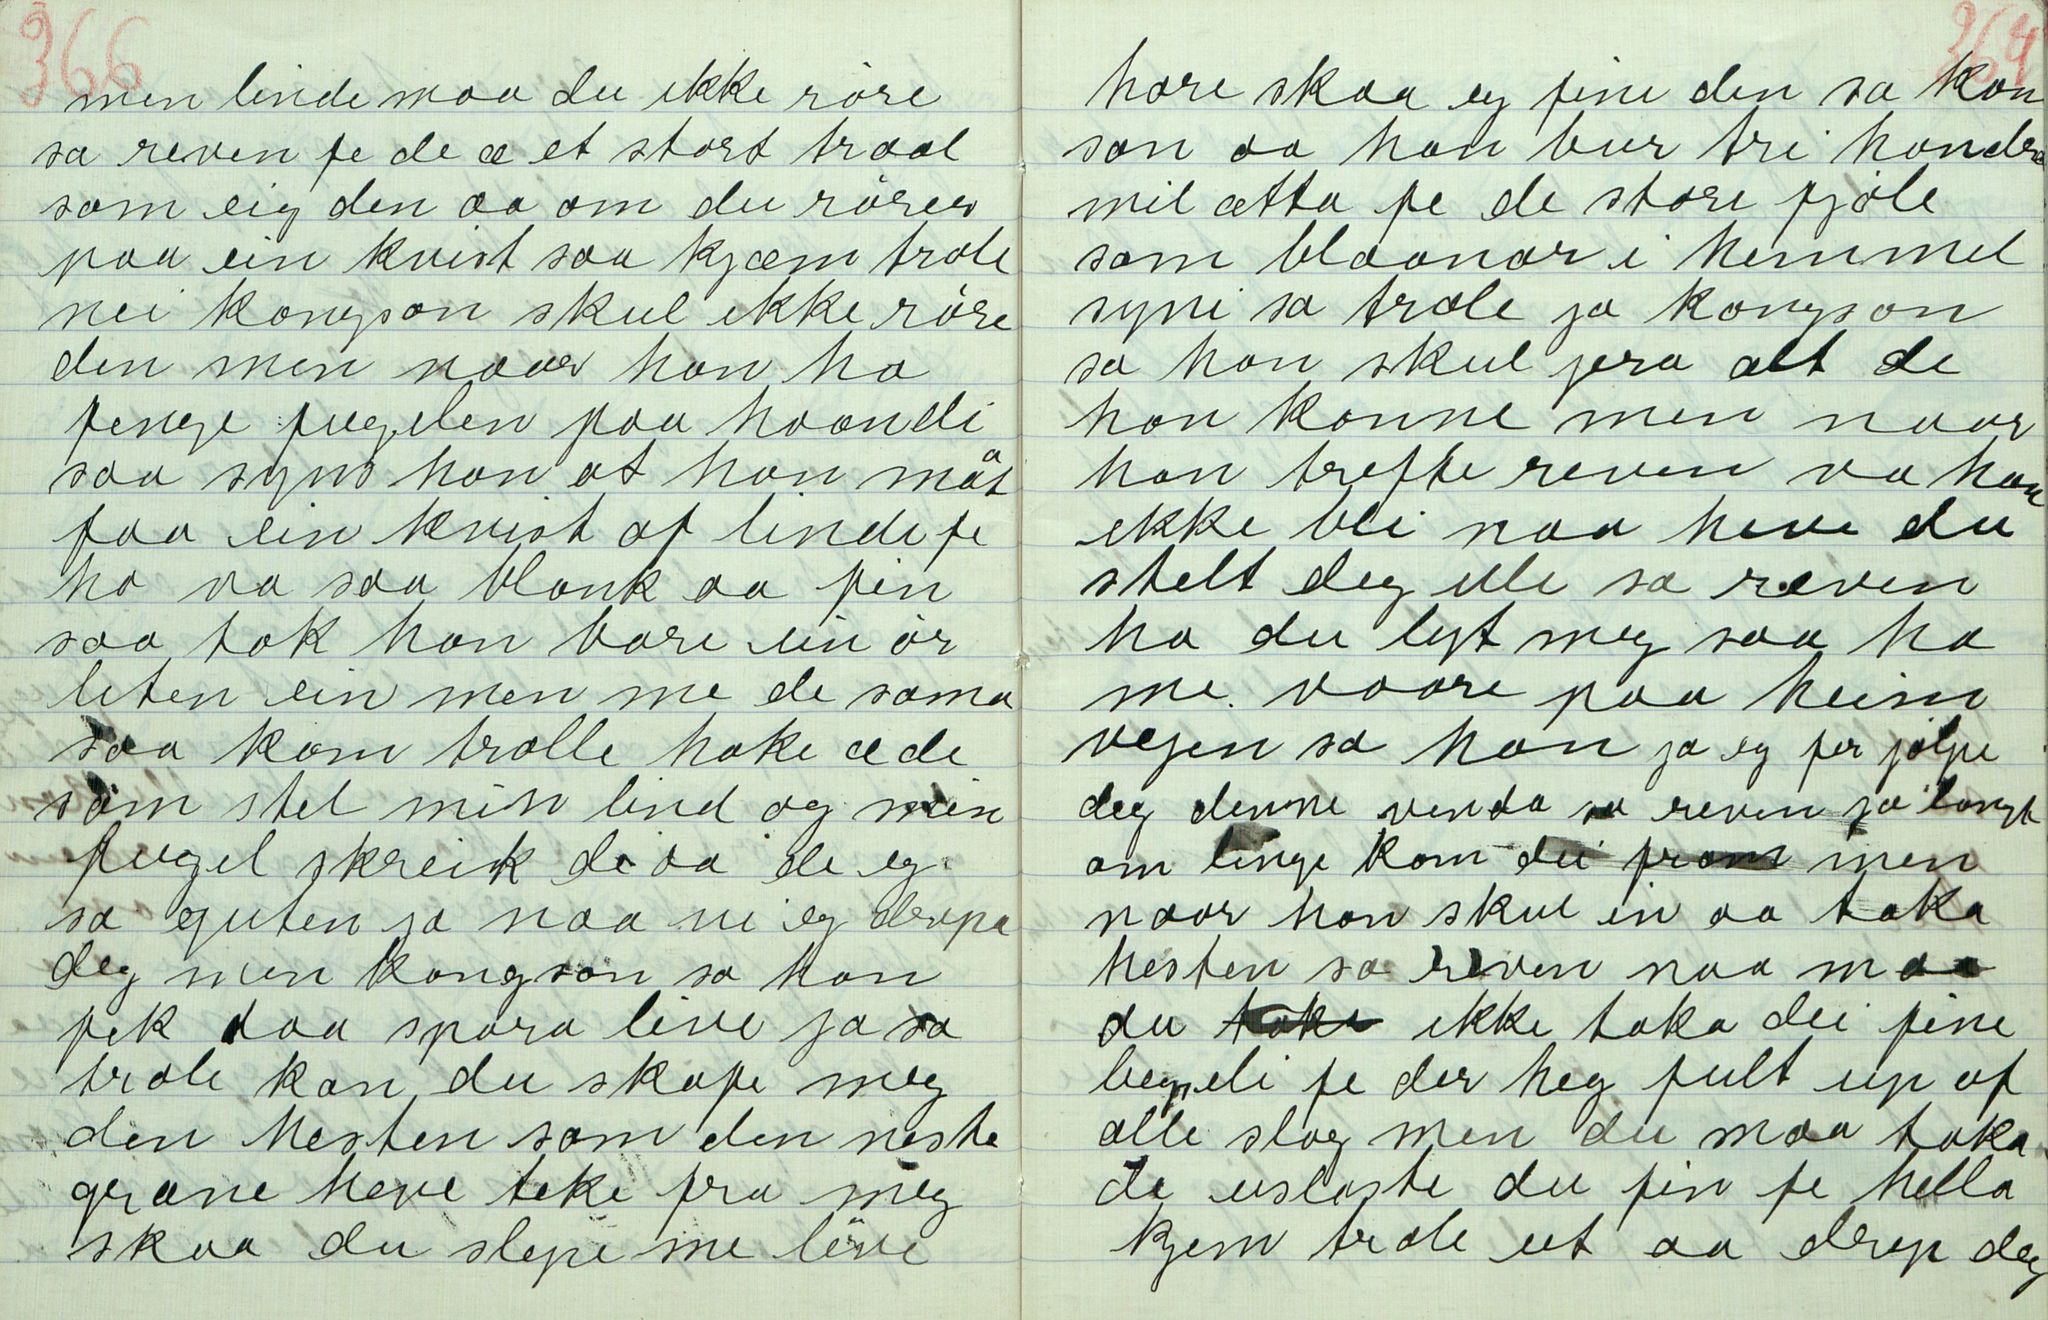 366
men linde maa du ikke røre
sa reven fe de æ et stort traal
som eig den aa om du rører
paa ein kvist saa kjæm trole
nei kongson skul ikke røre
den men naar han ha
fenge fugelen paa haandi
saa syns han at han måt
faa ein kvist af linde fe
ho va saa blank aa fin
saa tok han bare ein ör
liten ein men me de sama
saa kom trolle hoke æ de
som stel min lind og min
fugel skreik de aa de eg
sa guten ja naa vi eg drepa
deg men kongson sa han
fek daa spara live ja sa
trole kan du skafe meg
den hesten som den neste
grane heve teke fra meg
skaa du slepe me live
364
hore skaa eg fine den sa kon
son aa han bur tri hondre
mil ætta fe de store fjøle
som blaanar i hemmel
syni sa trole ja kongson
sa han skul jera alt de
han konne men naar
han trefte reven va han
ikke bli naa heve du
stelt deg ile sa reven
ha du lyt meg saa ha
me vaare paa heim
vegen sa han ja eg fer jølpe
deg denne venda sa reven ja langt
om lenge kom dei fram men
naar han skul in aa taka
hesten sa reven naa maa
du ikke taka dei fine
begseli fe der heg fult up af
alle slag men du maa taka
de uslaste du fin fe hella
kjem trole ut aa drep deg